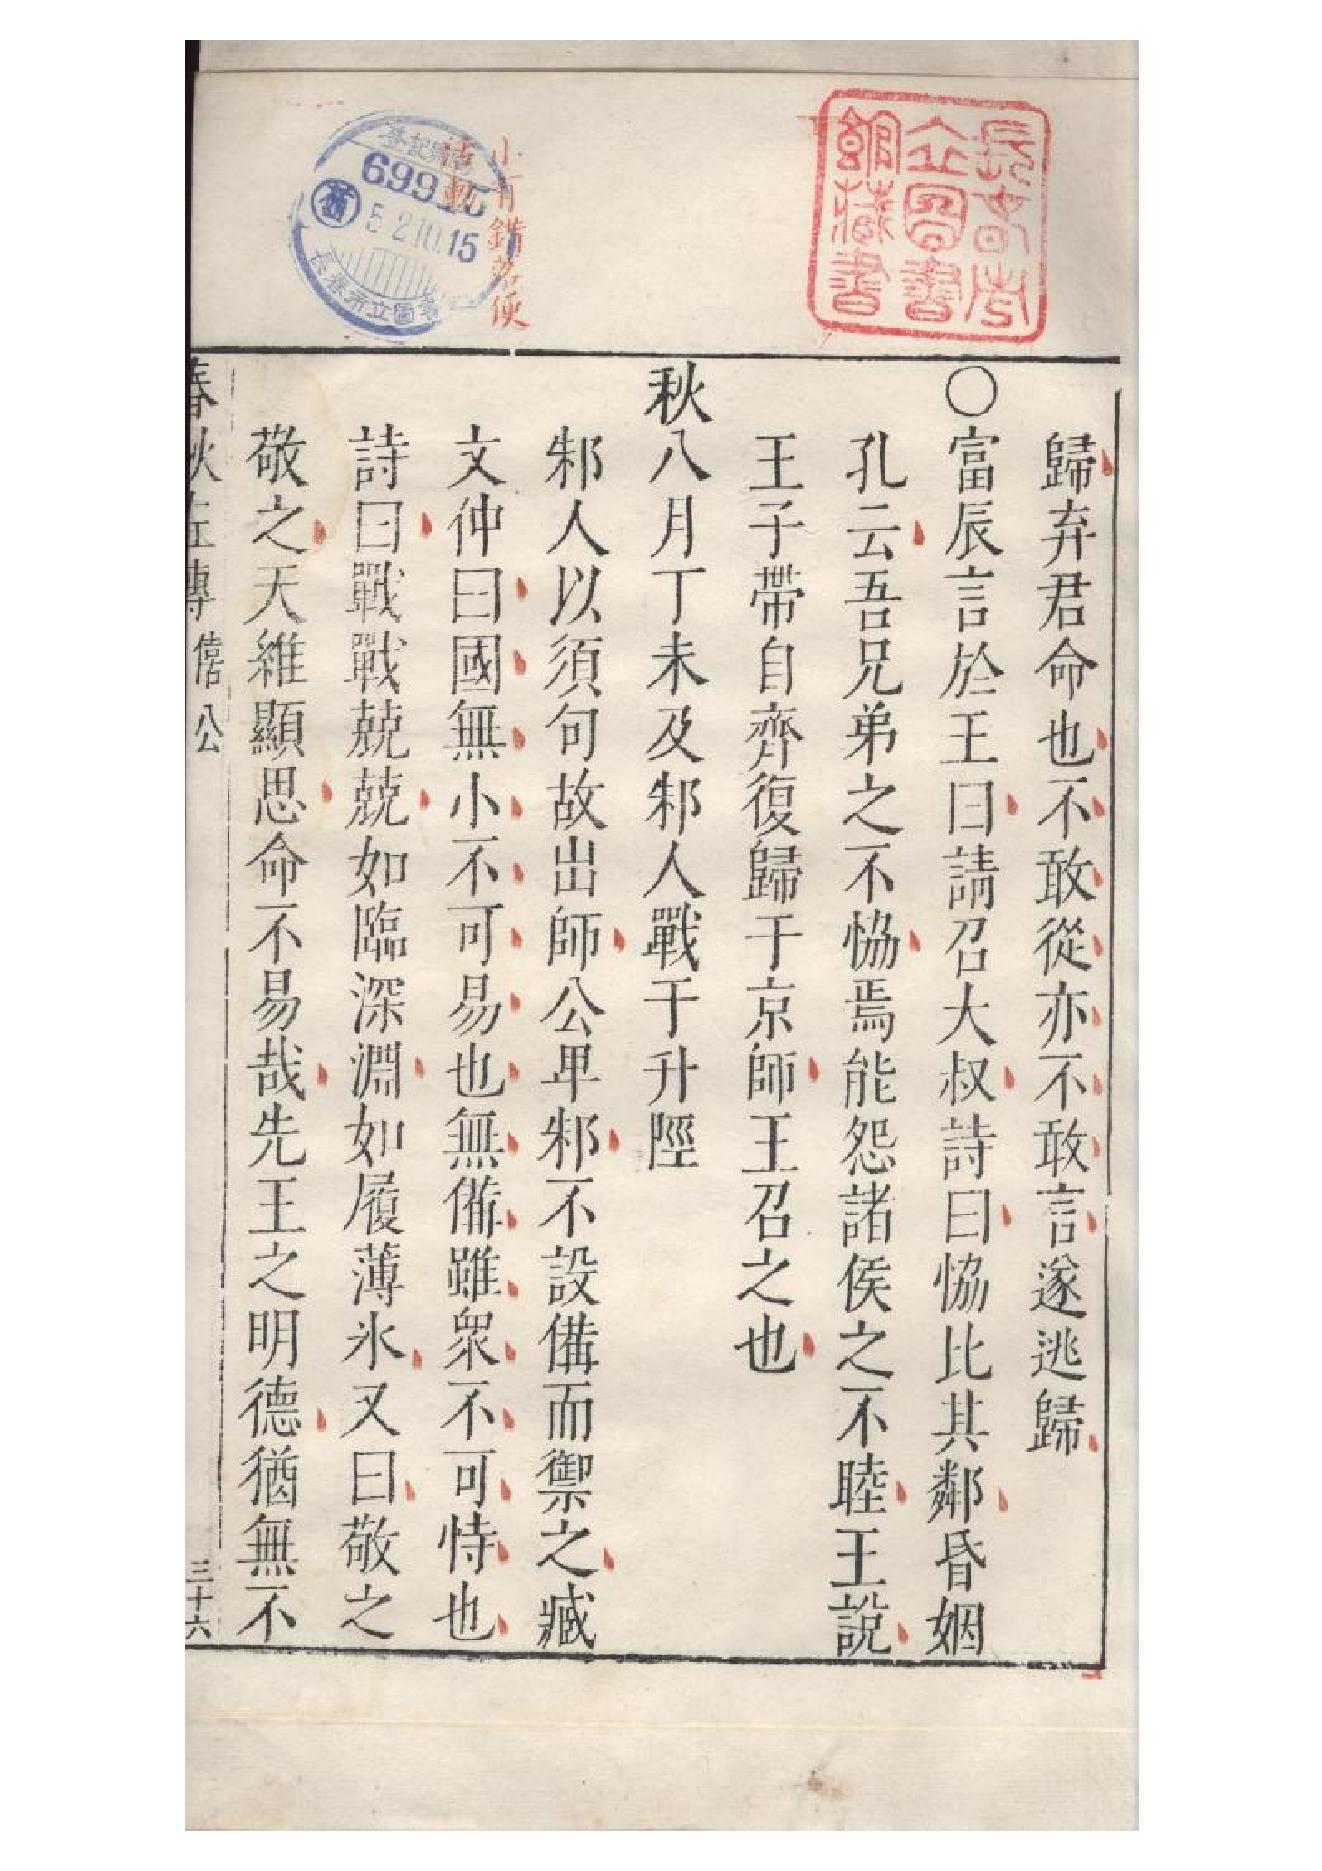 長春市
立圖書
館藏書
小有錯落便
活動
登記
69915
52.10.15
長春市立圖書
歸弃君命也不敢從亦不敢言遂逃歸
○富辰言於王曰請召大叔詩曰恊比其鄰昏姻
孔云吾兄弟之不恊焉能怨諸侯之不睦王說
王子帶自齊復歸于京師王召之也
秋八月丁未及邾人戰于升陘
邾人以須句故出師公卑邾不設備而禦之臧
文仲曰國無小不可易也無備雖眾不可恃也
詩曰戰戰兢兢如臨深淵如履薄氷又曰敬之
敬之天維顯思命不易哉先王之明德猶無不
春秋左傳 僖公 三十六